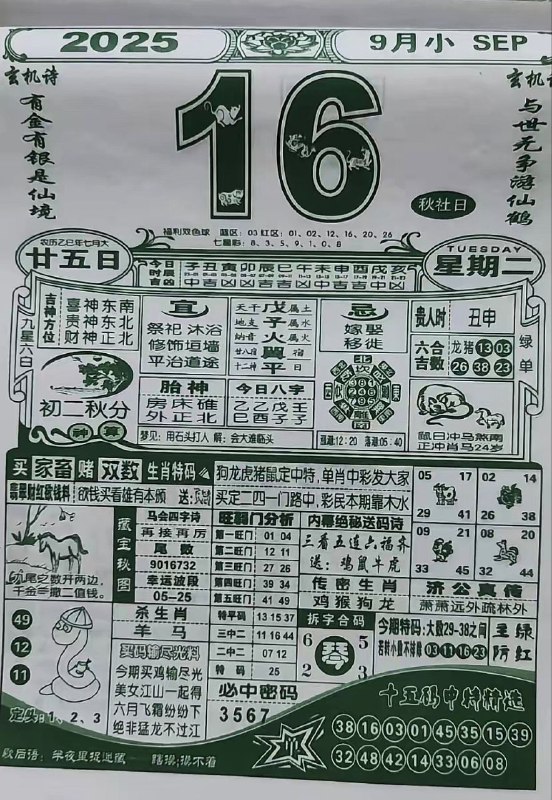 2025
9月小 SEP
玄机诗
有金有银是仙境
16
玄机
与世无争游仙鹤
秋社日
福利双色球 蓝区：03 红区：01、02、12、16、20、26
七星彩：8、3、5、9、1、0、8
农历乙巳年七月大
廿五日
今日时辰吉凶
子丑寅卯辰巳午未申酉戌亥
TUESDAY
星期二
吉神方位
喜神东南
贵神东北
财神正北
九星六白
初二秋分
神算
宜
祭祀 沐浴
修饰垣墙
平治道途
胎神
房床碓
外正北
天干 戊 属土
地支 子 属水
纳音 火 属火
廿八宿 翼 宿
十二神 平 日
今日八字
乙乙戊壬
巳酉子子
忌
嫁娶
移徙
贵人时 丑申
六合吉数
龙猪 13 03
26 38 23
绿单
鼠日冲马煞南
正冲肖马24岁
梦见：用石头打人 解：会大难临头
涨潮12:20 落潮05:40
买家畜赌双数 生肖特码
翡翠财红砍钱料
欲钱买看雄有本领
狗龙虎猪鼠定中特，单肖中彩发大家
买定二四一门路中，彩民本期靠木水
05 17
29 41
02 14
26 38
09 21
33 45
08 20
32 44
尾之数开两边，
千金一撒二值钱。
藏宝秘图
马会四字诗
再接再厉
尾数
9016732
幸运波段
05-25
杀生肖
羊马
买码输尽光料
今期买鸡输尽光
美女江山一起得
六月飞霜纷纷下
绝非猛龙不过江
旺弱门分析
第一旺门 01 04
第二旺门 12 11
第三旺门 27 26
第四旺门 39 34
第五旺门 41 49
特平码 13 15 37
三中二 11 16 44
二中二 07 12
特码 25
必中密码
3567
内幕绝秘送码诗
三看五连六福齐
送：鸡鼠牛虎
传密生肖
鸡猴狗龙
济公真传
萧萧远外疏林外
拆字合码
6 5
琴
2 3
今期特码：大数29-38之间
03 11 16 23
主绿
防红
49
12
11
定头：1、2、3
十五码中特精选
38 16 03 01 45 35 15 39
32 48 42 14 33 06 08